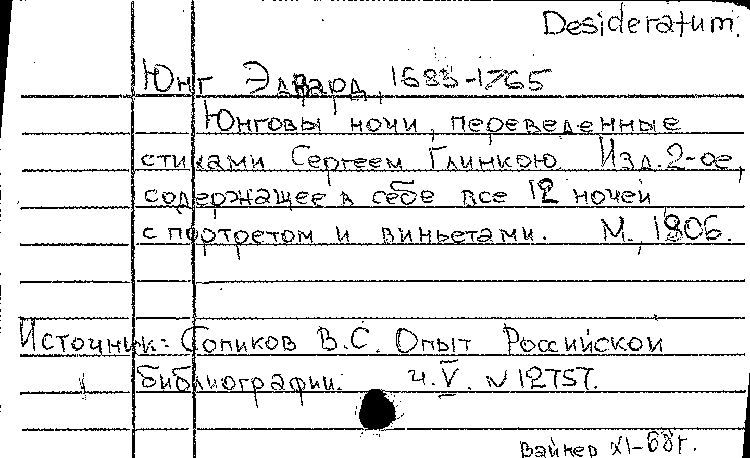 Desideratum.
Юнг Эдвард, 1683-1765
Юнговы ночи, переведенные
стихами Сергеем Глинкою. Изд. 2-ое,
содержащее в себе все 12 ночей
с портретом и виньетами. М., 1806.
Источник: Сопиков В.С. Опыт Российской
библиографии. ч. V. N 12757.
Вайнер XI-68г.